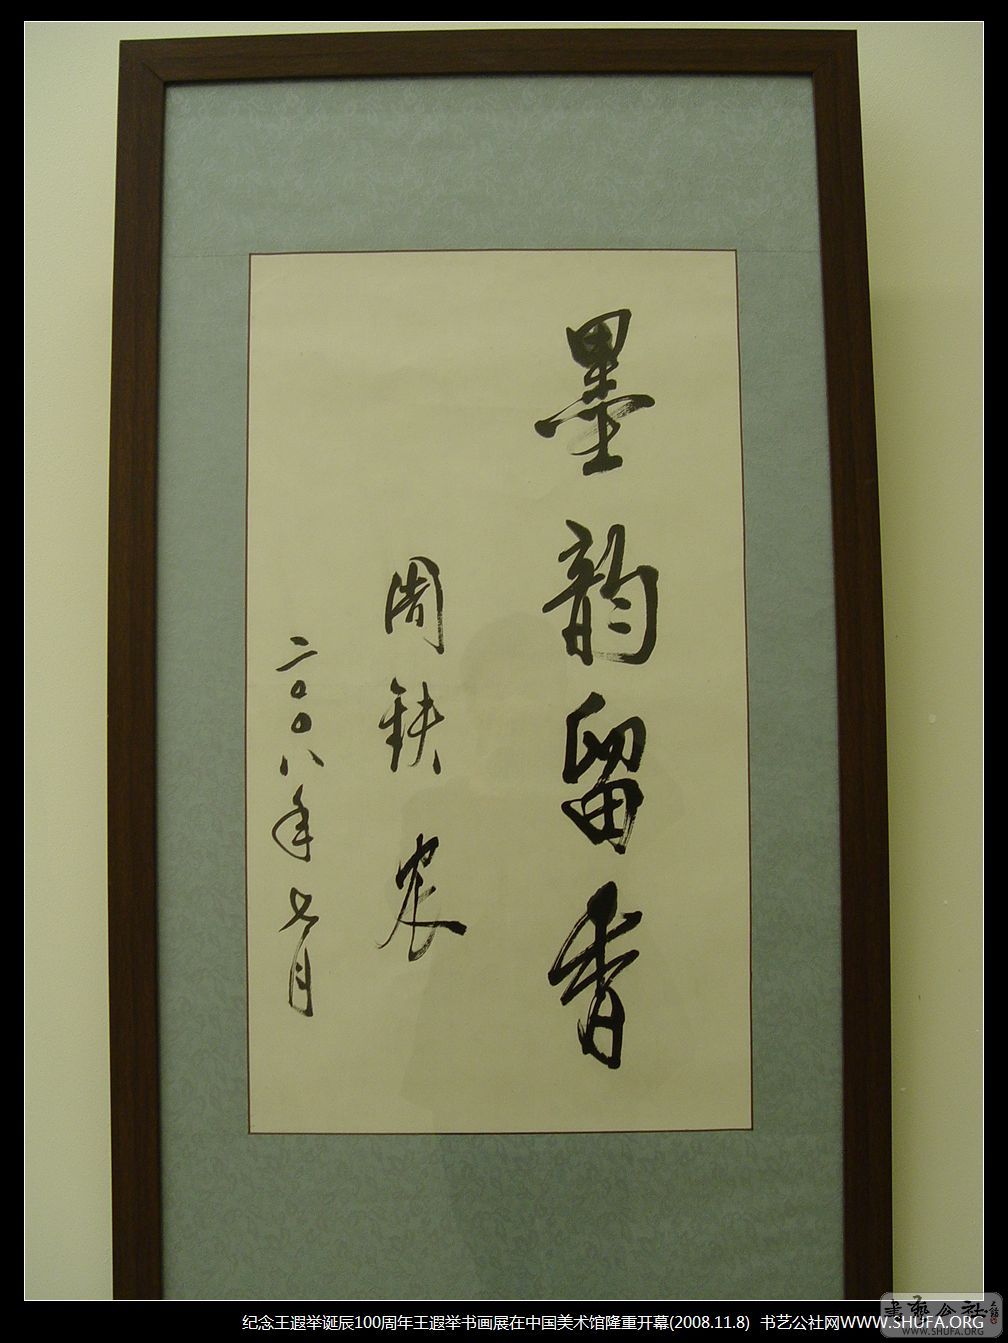 墨韵留香
周铁农
二〇〇八年七月
纪念王遐举诞辰100周年王遐举书画展在中国美术馆隆重开幕(2008.11.8) 书艺公社网WWW.SHUFA.ORG
书艺公社
WWW.SHUFA.ORG